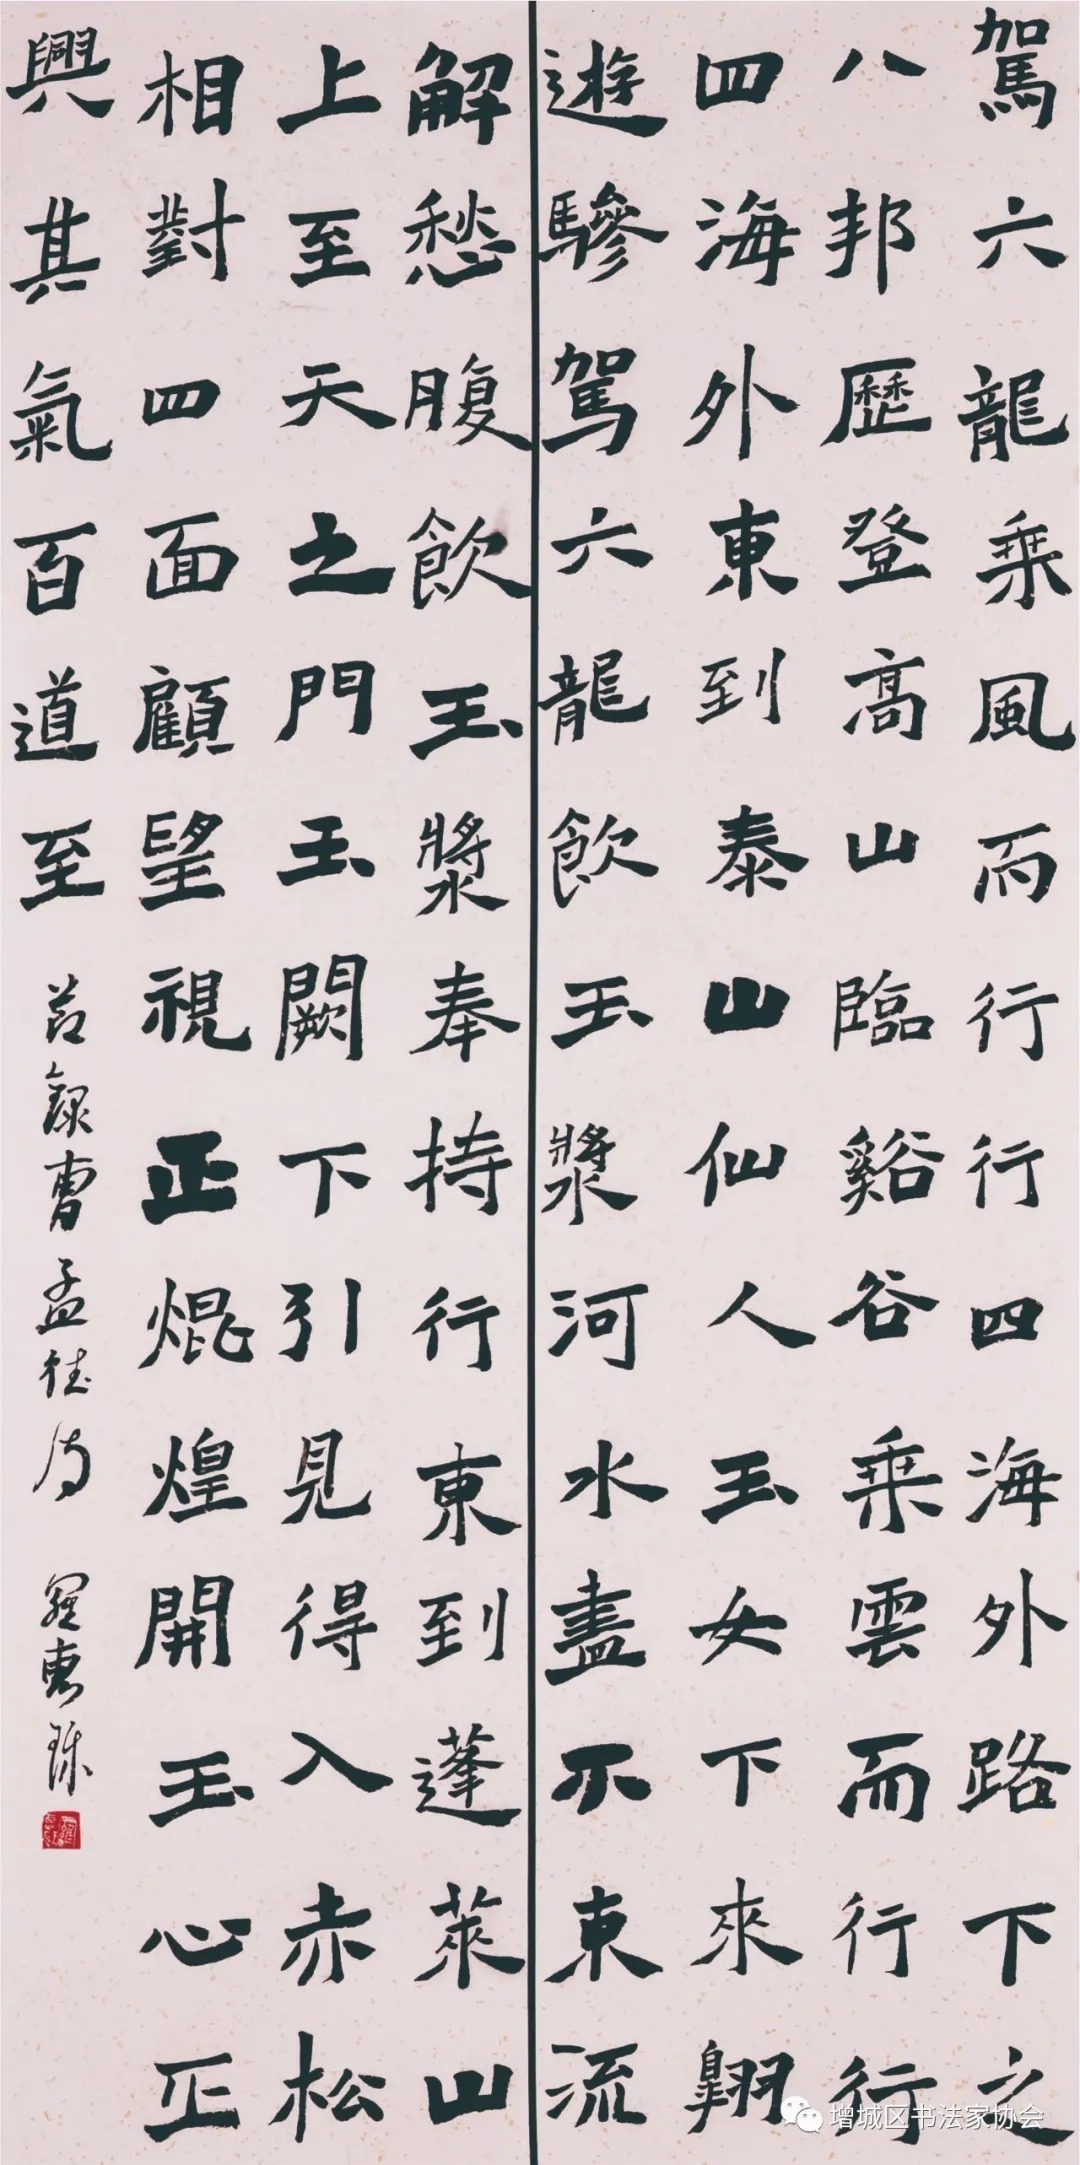 駕六龍乘風而行行四海外路下之
八邦歷登高山臨谿谷乘雲而行行
四海外東到泰山仙人玉女下來翱
遊驂駕六龍飲玉漿河水盡不東流
解愁腹飲玉漿奉持行東到蓬萊山
上至天之門玉闕下引見得入赤松
相對四面顧望視正焜煌開玉心正
興其氣百道至
節錄曹孟德詩
增城区书法家协会